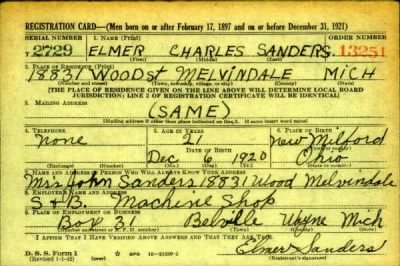 REGISTRATION CARD—(Men born on or after February 17, 1897 and on or before December 31, 1921)
SERIAL NUMBER 1. NAME (Print) ORDER NUMBER
T 2729 ELMER CHARLES SANDERS 13251
(First) (Middle) (Last)
2. PLACE OF RESIDENCE (Print)
18831 WOOD St MELVINDALE MICH
(Number and street) (Town, township, village, or city) (County) (State)
[THE PLACE OF RESIDENCE GIVEN ON THE LINE ABOVE WILL DETERMINE LOCAL BOARD
JURISDICTION; LINE 2 OF REGISTRATION CERTIFICATE WILL BE IDENTICAL]
3. MAILING ADDRESS
(SAME)
[Mailing address if other than place indicated on line 2. If same insert word same]
4. TELEPHONE 5. AGE IN YEARS 6. PLACE OF BIRTH
none 21 New Milford
DATE OF BIRTH (Town or county)
Dec 6 1920 Ohio
(Exchange) (Number) (Mo.) (Day) (Yr.) (State or country)
7. NAME AND ADDRESS OF PERSON WHO WILL ALWAYS KNOW YOUR ADDRESS
Mrs John Sanders 18831 Wood Melvindale
8. EMPLOYER'S NAME AND ADDRESS
S + B. Machine Shop
9. PLACE OF EMPLOYMENT OR BUSINESS
Box 31 Belville Wayne Mich
(Number and street or R. F. D. number) (Town) (County) (State)
I AFFIRM THAT I HAVE VERIFIED ABOVE ANSWERS AND THAT THEY ARE TRUE.
D. S. S. Form 1 GPO Elmer Sanders
(Revised 1-1-42) (over) (Registrant's signature)